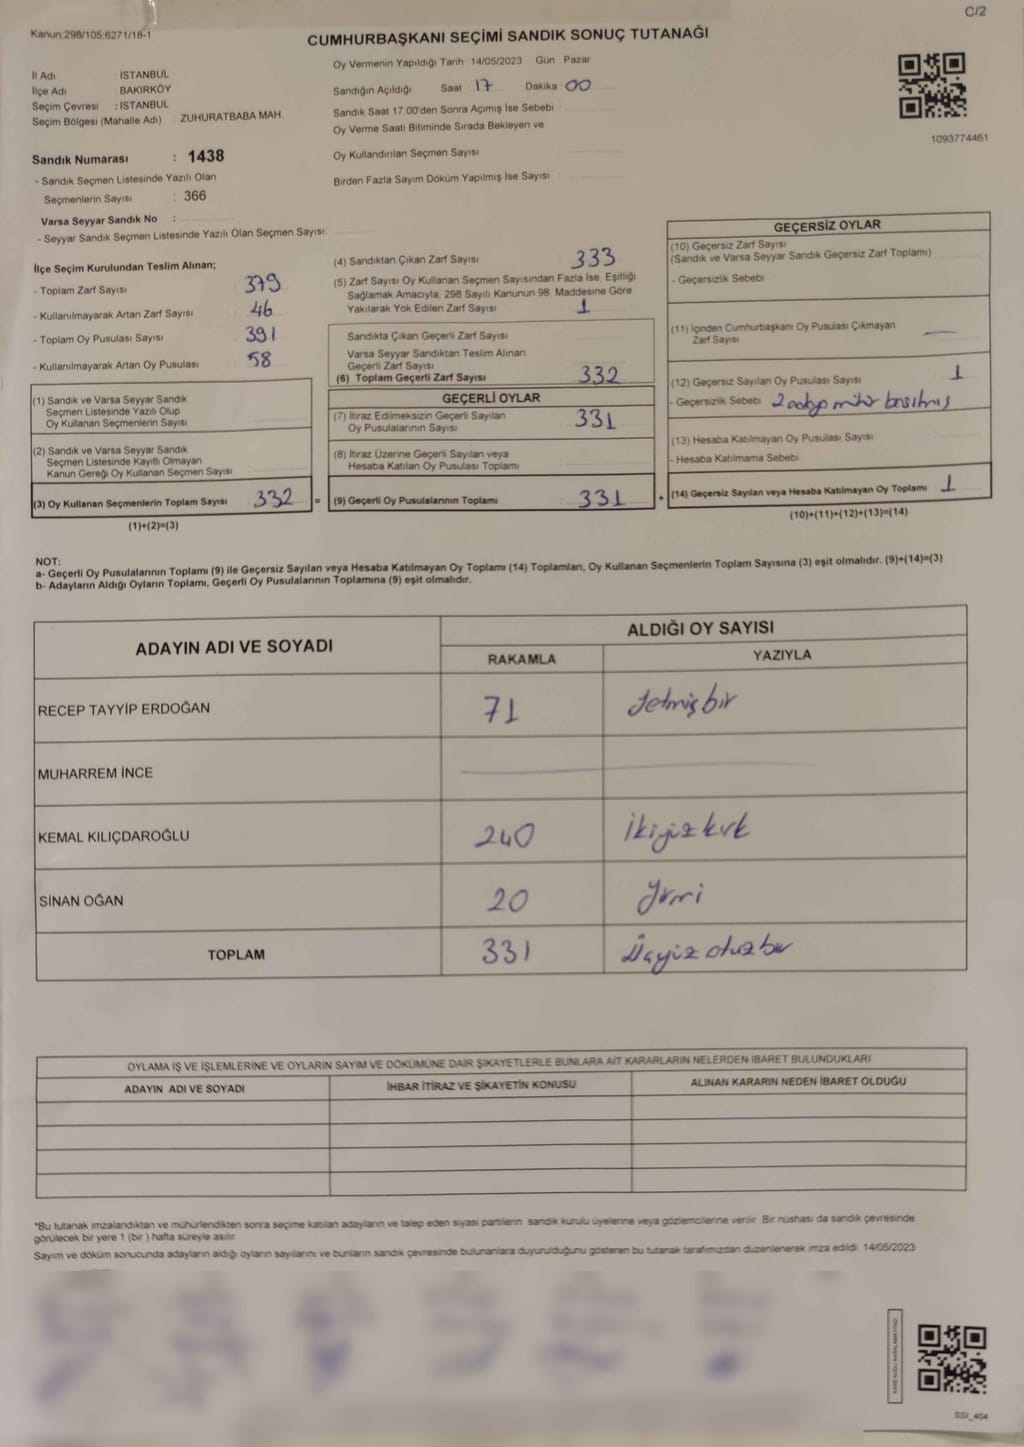 C/2
Kanun:298/105;6271/18-1
CUMHURBAŞKANI SEÇİMİ SANDIK SONUÇ TUTANAĞI
İl Adı : İSTANBUL
İlçe Adı : BAKIRKÖY
Seçim Çevresi : İSTANBUL
Seçim Bölgesi (Mahalle Adı) : ZUHURATBABA MAH.
Sandık Numarası : 1438
- Sandık Seçmen Listesinde Yazılı Olan
Seçmenlerin Sayısı : 366
Varsa Seyyar Sandık No :
- Seyyar Sandık Seçmen Listesinde Yazılı Olan Seçmen Sayısı:
Oy Vermenin Yapıldığı Tarih 14/05/2023 Gün Pazar
Sandığın Açıldığı Saat 17 Dakika 00
Sandık Saat 17:00'den Sonra Açımış İse Sebebi
Oy Verme Saati Bitiminde Sırada Bekleyen ve
Oy Kullandırılan Seçmen Sayısı
Birden Fazla Sayım Döküm Yapılmış İse Sayısı
1093774461
İlçe Seçim Kurulundan Teslim Alınan;
- Toplam Zarf Sayısı 379
- Kullanılmayarak Artan Zarf Sayısı 46
- Toplam Oy Pusulası Sayısı 391
- Kullanılmayarak Artan Oy Pusulası 58
(1) Sandık ve Varsa Seyyar Sandık
Seçmen Listesinde Yazılı Olup
Oy Kullanan Seçmenlerin Sayısı
(2) Sandık ve Varsa Seyyar Sandık
Seçmen Listesinde Kayıtlı Olmayan
Kanun Gereği Oy Kullanan Seçmen Sayısı
(3) Oy Kullanan Seçmenlerin Toplam Sayısı 332 =
(1)+(2)=(3)
(4) Sandıktan Çıkan Zarf Sayısı 333
(5) Zarf Sayısı Oy Kullanan Seçmen Sayısından Fazla İse, Eşitliği
Sağlamak Amacıyla, 298 Sayılı Kanunun 98. Maddesine Göre
Yakılarak Yok Edilen Zarf Sayısı 1
Sandıkta Çıkan Geçerli Zarf Sayısı
Varsa Seyyar Sandıktan Teslim Alınan
Geçerli Zarf Sayısı
(6) Toplam Geçerli Zarf Sayısı 332
GEÇERLİ OYLAR
(7) İtiraz Edilmeksizin Geçerli Sayılan
Oy Pusulalarının Sayısı 331
(8) İtiraz Üzerine Geçerli Sayılan veya
Hesaba Katılan Oy Pusulası Toplamı
(9) Geçerli Oy Pusulalarının Toplamı 331 +
GEÇERSİZ OYLAR
(10) Geçersiz Zarf Sayısı
(Sandık ve Varsa Seyyar Sandık Geçersiz Zarf Toplamı)
- Geçersizlik Sebebi
(11) İçinden Cumhurbaşkanı Oy Pusulası Çıkmayan
Zarf Sayısı
(12) Geçersiz Sayılan Oy Pusulası Sayısı 1
- Geçersizlik Sebebi 2 adaya mühür basılmış
(13) Hesaba Katılmayan Oy Pusulası Sayısı
- Hesaba Katılmama Sebebi
(14) Geçersiz Sayılan veya Hesaba Katılmayan Oy Toplamı 1
(10)+(11)+(12)+(13)=(14)
NOT:
a- Geçerli Oy Pusulalarının Toplamı (9) ile Geçersiz Sayılan veya Hesaba Katılmayan Oy Toplamı (14) Toplamları, Oy Kullanan Seçmenlerin Toplam Sayısına (3) eşit olmalıdır. (9)+(14)=(3)
b- Adayların Aldığı Oyların Toplamı, Geçerli Oy Pusulalarının Toplamına (9) eşit olmalıdır.
ADAYIN ADI VE SOYADI ALDIĞI OY SAYISI
RAKAMLA YAZIYLA
RECEP TAYYİP ERDOĞAN 71 Yetmişbir
MUHARREM İNCE
KEMAL KILIÇDAROĞLU 240 İkiyüzkırk
SİNAN OĞAN 20 Yirmi
TOPLAM 331 Üçyüz otuz bir
OYLAMA İŞ VE İŞLEMLERİNE VE OYLARIN SAYIM VE DÖKÜMÜNE DAİR ŞİKAYETLERLE BUNLARA AİT KARARLARIN NELERDEN İBARET BULUNDUKLARI
ADAYIN ADI VE SOYADI İHBAR İTİRAZ VE ŞİKAYETİN KONUSU ALINAN KARARIN NEDEN İBARET OLDUĞU
*Bu tutanak imzalandıktan ve mühürlendikten sonra seçime katılan adayların ve talep eden siyasi partilerin sandık kurulu üyelerine veya gözlemcilerine verilir. Bir nüshası da sandık çevresinde
görülecek bir yere 1 (bir) hafta süreyle asılır.
Sayım ve döküm sonucunda adayların aldığı oyların sayılarını ve bunların sandık çevresinde bulunanlara duyurulduğunu gösteren bu tutanak tarafımızdan düzenlenerek imza edildi. 14/05/2023
SSI_404